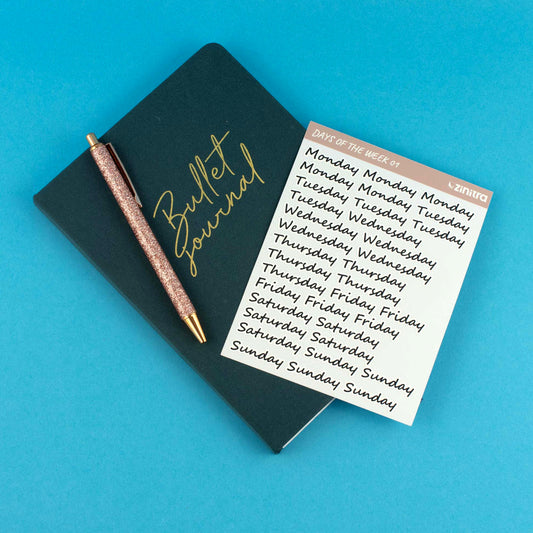 Bullet
Journal
DAYS OF THE WEEK 01
zinitra
Monday Monday Monday
Monday Monday Tuesday
Tuesday Tuesday Tuesday
Tuesday Wednesday
Wednesday Wednesday
Wednesday Wednesday
Thursday Thursday
Thursday Thursday
Thursday Friday Friday
Friday Friday Friday
Saturday Saturday
Saturday Saturday
Saturday Sunday Sunday
Sunday Sunday Sunday